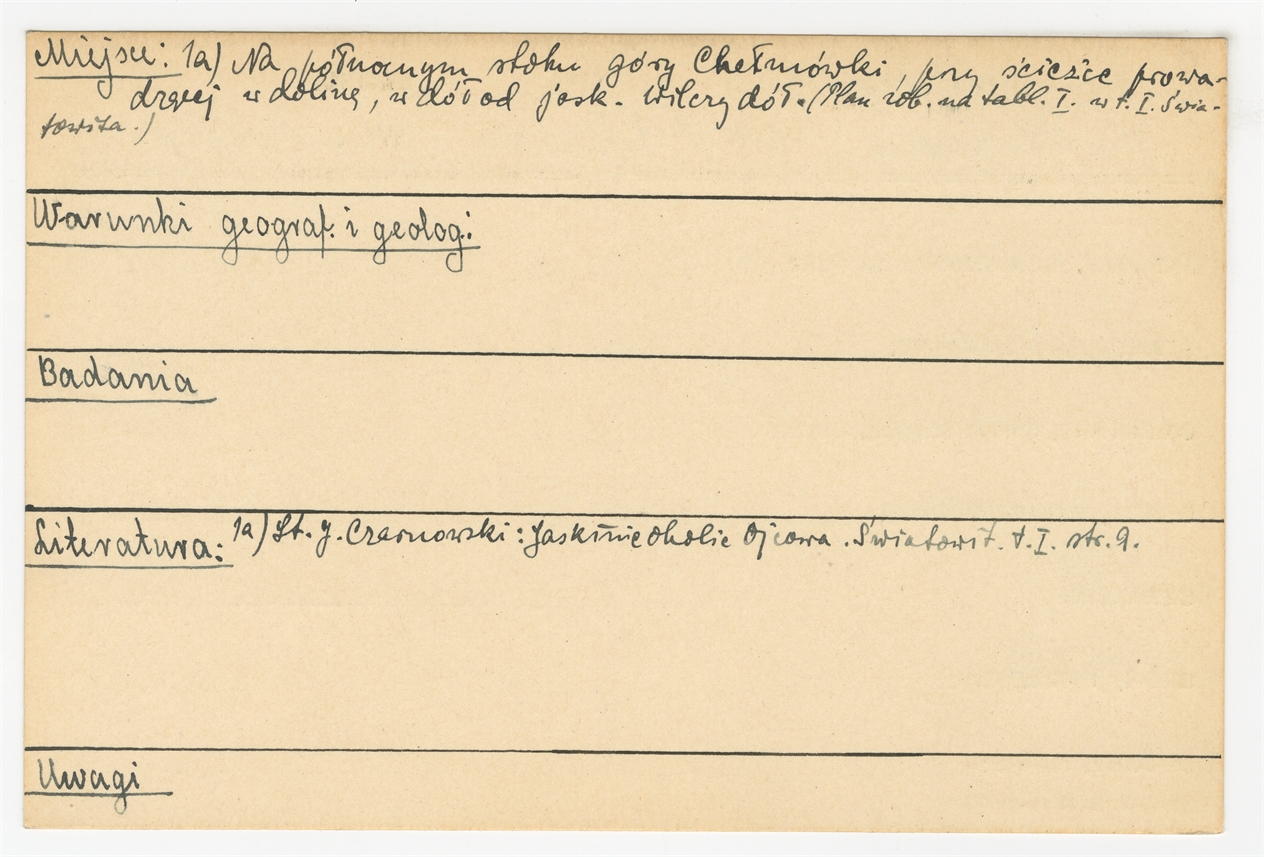 Miejsce: 1a) Na północnym stoku góry Chełmówki, przy ścieżce prowa-
dzącej w dolinę, w dół od jask. Wilczy dół. (Plan zob. na tabl. I. w t. I. Świa-
towita.)
Warunki geograf. i geolog.:
Badania
Literatura: 1a) St. J. Czarnowski: Jaskinie okolic Ojcowa. Światowit. t. I. str. 9.
Uwagi